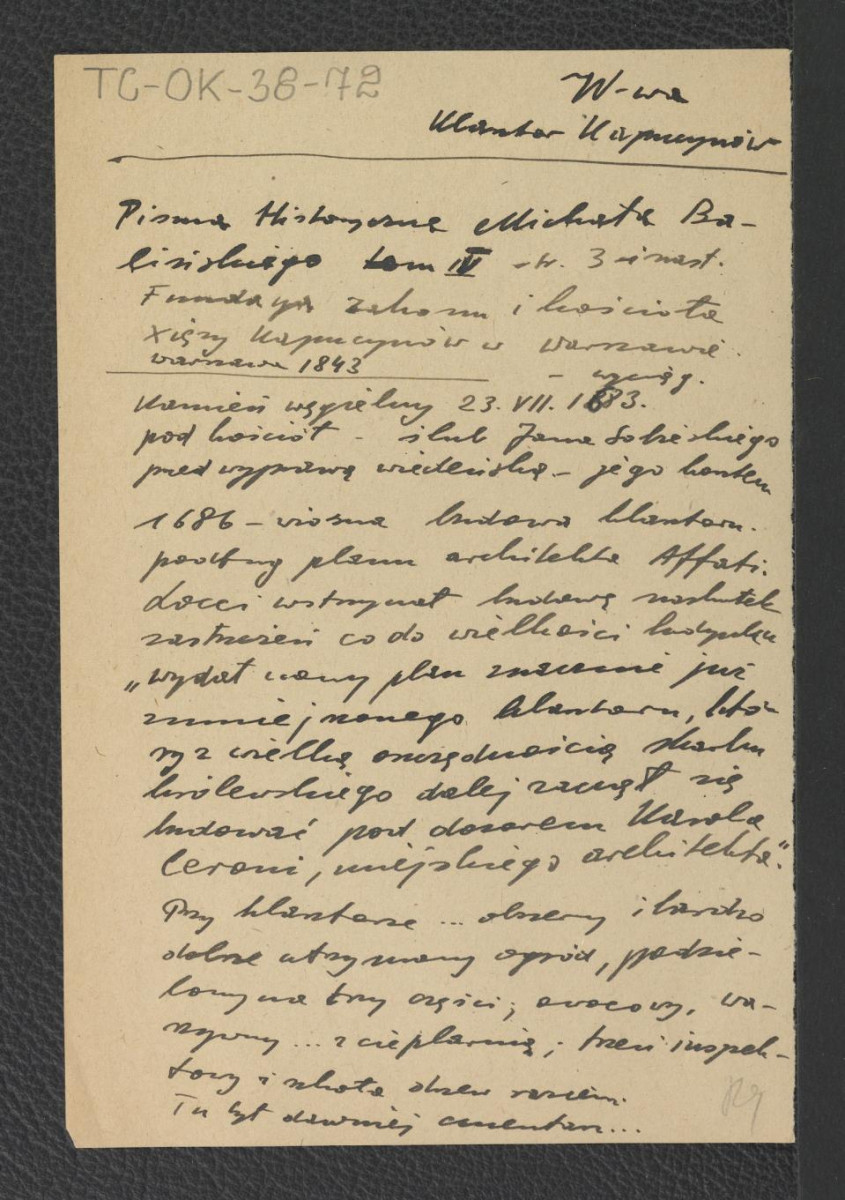 TC-OK-38-72
W-wa
Klasztor Kapucynów
Pisma Historyczne Michała Ba-
lińskiego tom IV str. 3 i nast.
Fundacya zakonu i kościoła
Xięży Kapucynów w Warszawie.
Warszawa 1843
– wyciąg.
Kamień węgielny 23. VII. 1683.
pod kościół – ślub Jana Sobieskiego
przed wyprawą wiedeńską – jego kosztem
1686 – wiosna budowa klasztoru.
podług planu architekta Affati.
Locci wstrzymał budowę naskutek
zastrzeżeń co do wielkości budynku
„wydał nowy plan znacznie już
zmniejszonego klasztoru, któ-
ry z wielką oszczędnością skarbu
królewskiego dalej zaczął się
budować pod dozorem Karola
Ceroni, miejskiego architekta".
Przy klasztorze ... obszerny i bardzo
dobrze utrzymany ogród, podzie-
lony na trzy części; owocowy, wa-
rzywny ... z cieplarnią; trzeci inspek-
towy i szkoła drzew razem.
Tu był dawniej cmentarz...